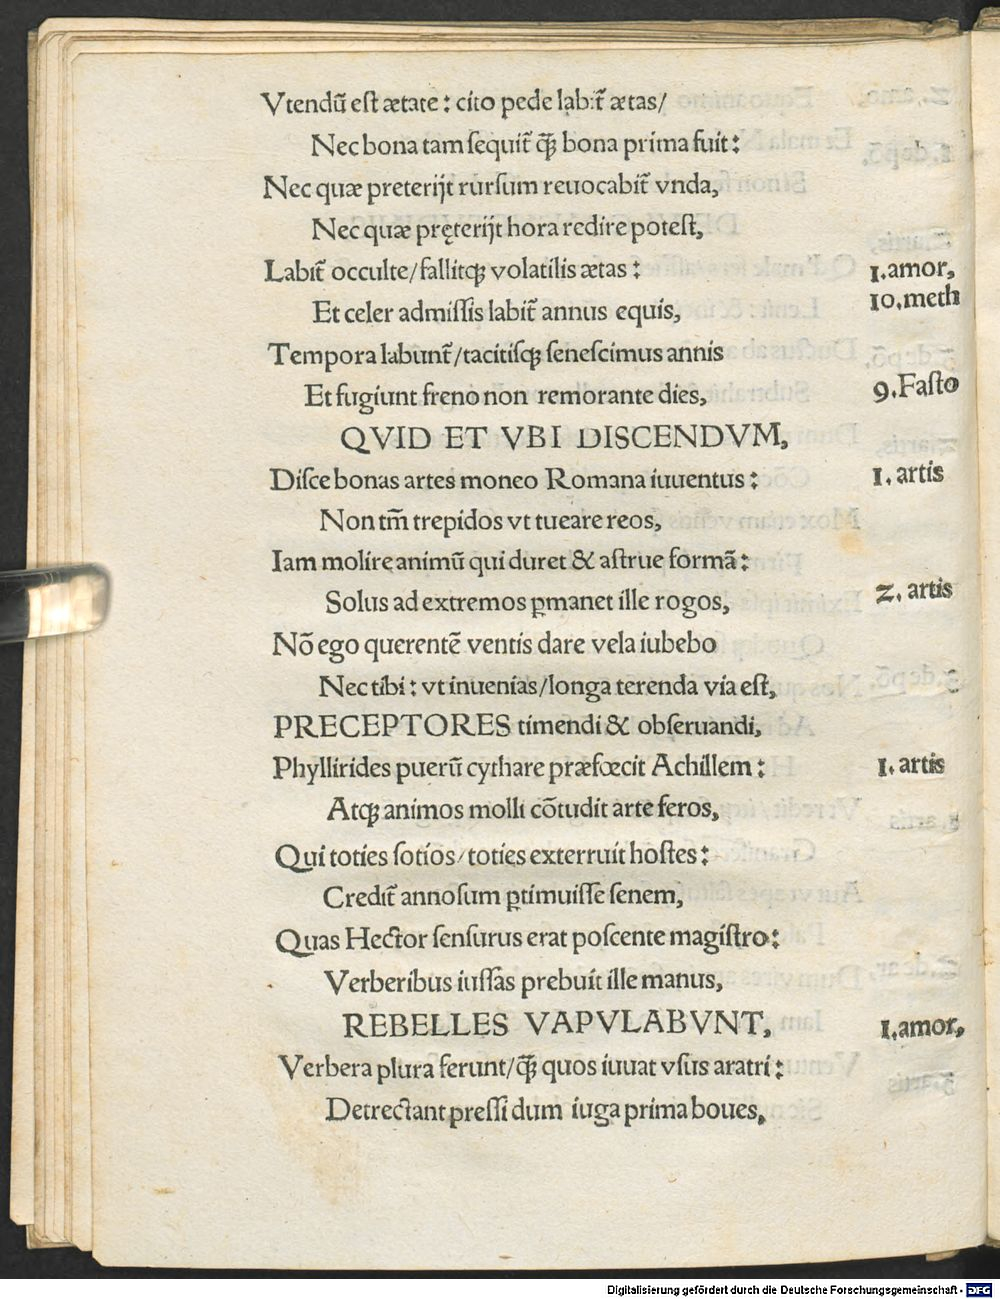 Vtendū eſt ætate: cito pede labit᷑ ætas/
Nec bona tam ſequit᷑ ꝙ̃ bona prima fuit:
Nec quæ preterijt rurſum reuocabit᷑ vnda,
Nec quæ pręterijt hora redire poteſt,
Labit᷑ occulte/fallitqꝫ volatilis ætas: 1.amor,
Et celer admiſſis labit᷑ annus equis, 10.meth
Tempora labunt᷑/tacitiſqꝫ ſeneſcimus annis
Et fugiunt freno non remorante dies, 9.Faſto
QVID ET VBI DISCENDVM,
Diſce bonas artes moneo Romana iuuentus: 1. artis
Non tm̄ trepidos vt tueare reos,
Iam molire animū qui duret & aſtrue formā:
Solus ad extremos ꝑmanet ille rogos, 2. artis
Nō ego querentē ventis dare vela iubebo
Nec tibi: vt inuenias/longa terenda via eſt,
PRECEPTORES timendi & obſeruandi,
Phyllirides puerū cythare præfœcit Achillem: 1. artis
Atqꝫ animos molli cōtudit arte feros,
Qui toties ſotios/toties exterruit hoſtes:
Credit᷑ annoſum ꝑtimuiſſe ſenem,
Quas Hector ſenſurus erat poſcente magiſtro:
Verberibus iuſſas prebuit ille manus,
REBELLES VAPVLABVNT, 1.amor,
Verbera plura ferunt/ꝙ̃ quos iuuat vſus aratri:
Detrectant preſſi dum iuga prima boues,
Digitalisierung gefördert durch die Deutsche Forschungsgemeinschaft - DFG